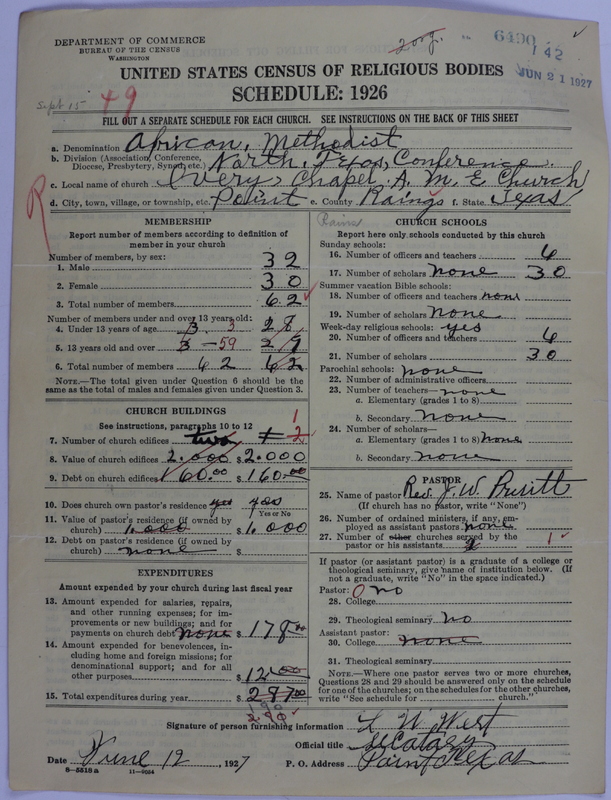 DEPARTMENT OF COMMERCE
BUREAU OF THE CENSUS
WASHINGTON
6490
142
JUN 21 1927
UNITED STATES CENSUS OF RELIGIOUS BODIES
SCHEDULE: 1926
Sept 15
49
FILL OUT A SEPARATE SCHEDULE FOR EACH CHURCH. SEE INSTRUCTIONS ON THE BACK OF THIS SHEET
a. Denomination African, Methodist
b. Division (Association, Conference, Diocese, Presbytery, Synod, etc.) North, Texas, Conference.
c. Local name of church Every Chapel A. M. E Church
d. City, town, village, or township, etc. Point e. County Raings f. State Texas
R
Rains
MEMBERSHIP
Report number of members according to definition of
member in your church
Number of members, by sex:
1. Male 32
2. Female 30
3. Total number of members 62
Number of members under and over 13 years old:
4. Under 13 years of age 3 3 28
5. 13 years old and over 3 -59 27
6. Total number of members 62 62
NOTE.—The total given under Question 6 should be the
same as the total of males and females given under Question 3.
CHURCH BUILDINGS
See instructions, paragraphs 10 to 12
1
7. Number of church edifices two 1 2
8. Value of church edifices 2.000 $ 2.000
9. Debt on church edifices 160.00 $ 160.00
10. Does church own pastor's residence yes yes
Yes or No
11. Value of pastor's residence (if owned by
church) 1.000 $ 1.000
12. Debt on pastor's residence (if owned by
church) none $
EXPENDITURES
Amount expended by your church during last fiscal year
13. Amount expended for salaries, repairs,
and other running expenses; for im-
provements or new buildings; and for
payments on church debt none $ 178.00
14. Amount expended for benevolences, in-
cluding home and foreign missions; for
denominational support; and for all
other purposes $ 12.00
15. Total expenditures during year $ 287.00
190
CHURCH SCHOOLS
Report here only schools conducted by this church
Sunday schools:
16. Number of officers and teachers 6
17. Number of scholars none 30
Summer vacation Bible schools:
18. Number of officers and teachers none
19. Number of scholars none
Week-day religious schools: yes
20. Number of officers and teachers 6
21. Number of scholars 30
Parochial schools: none
22. Number of administrative officers
23. Number of teachers— none
a. Elementary (grades 1 to 8)
b. Secondary none
24. Number of scholars—
a. Elementary (grades 1 to 8) none
b. Secondary none
PASTOR
25. Name of pastor Rev. J. W. Pruitt
(If church has no pastor, write "None")
26. Number of ordained ministers, if any, em-
ployed as assistant pastors none
27. Number of other churches served by the
pastor or his assistants 1
If pastor (or assistant pastor) is a graduate of a college or
theological seminary, give name of institution below. (If
not a graduate, write "No" in the space indicated.)
Pastor: O no
28. College
29. Theological seminary no
Assistant pastor:
30. College none
31. Theological seminary
NOTE.—Where one pastor serves two or more churches,
Questions 28 and 29 should be answered only on the schedule
for one of the churches; on the schedules for the other churches,
write "See schedule for church."
Signature of person furnishing information L W West
Official title Secatary
Date June 12, 1927 P. O. Address Point Texas
8—5518 a 11—9034